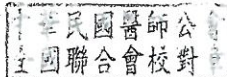 華民國醫師公會
全國聯合會校對